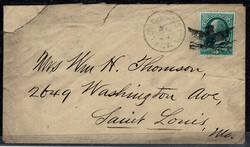 Mrs Wm H. Thomson,
2649 Washington Ave,
Saint Louis,
Mo.